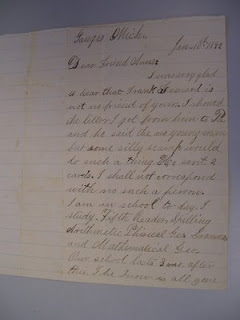 Ganges Mich.
Jan 18th 1882
Dear Friend
I was very glad
to hear that Frank Seward is
not no friend of yours. I showed
the letter I got from him to
and he said the no young man
but some silly scamp would
do such a thing He sent 2
cards. I shall not correspond
with no such a person.
I am in school to day. I
study. Fifth Reader, Spelling
Arithmetic, Physical Geo. Grammar
and Mathematical Geo.
Our school lasts 3 wks. after
this. I do know as all gone